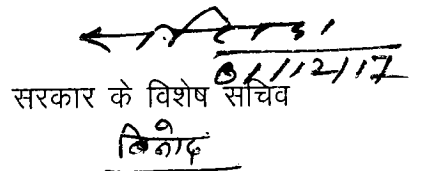 01/12/17
सरकार के विशेष सचिव
विनोद